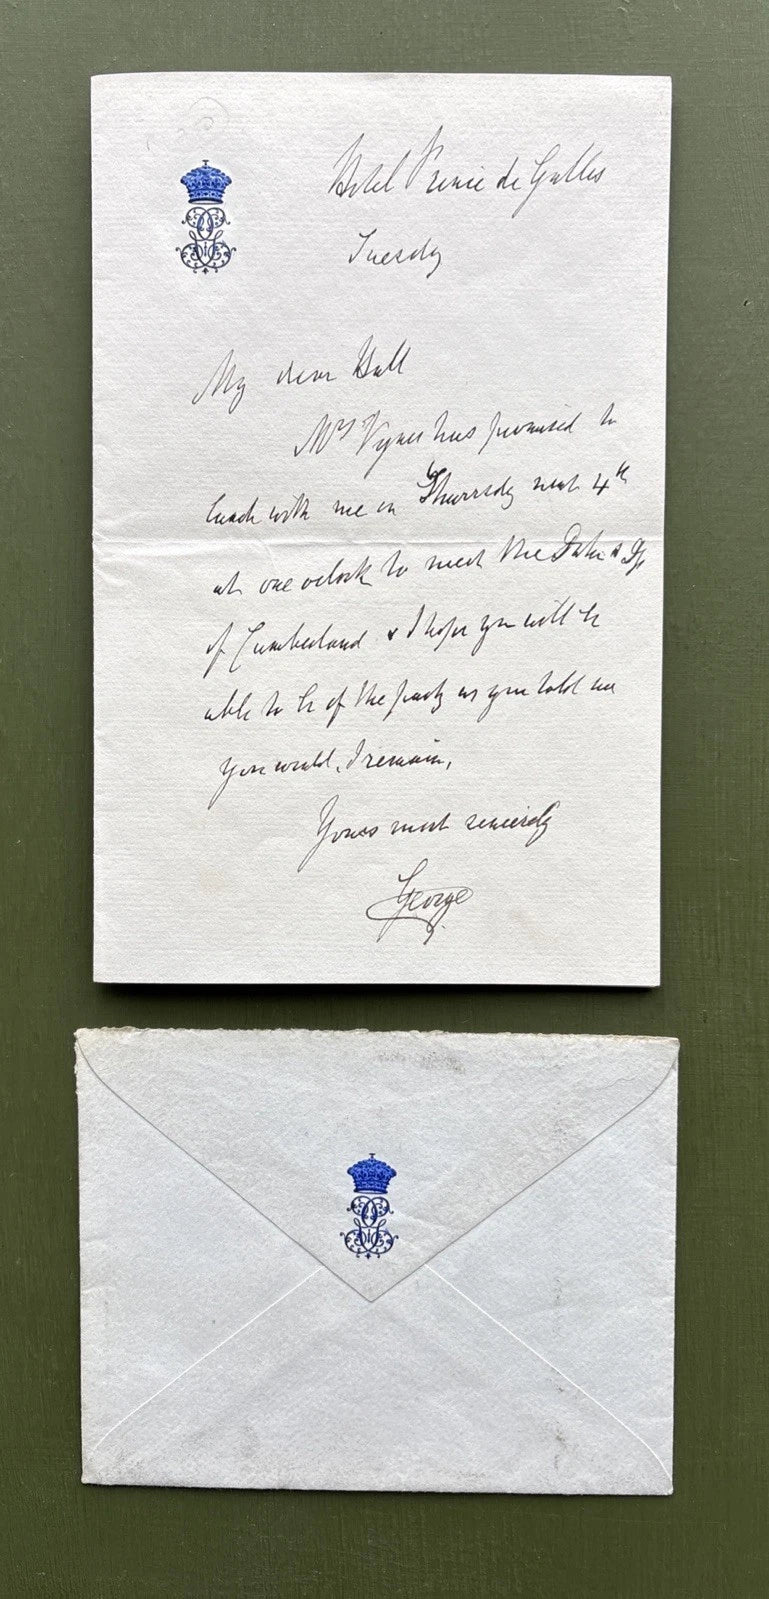 Hotel Prince de Galles
Tuesday
My dear Hall
Mrs Vyner has promised to
lunch with me on Thursday next 4th
at one oclock to meet the Duke &
of Cumberland & I hope you will be
able to be of the party as you told me
you would. I remain,
Yours most sincerely
George